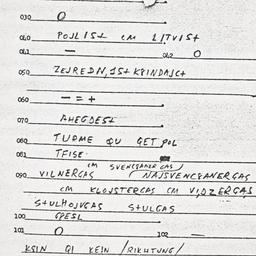 030 O
040 POJLIST CM LITVIST
041 — 042 O
050 ZEJREDN, IST KRINDAJCT
060 — = +
070 AHEGDEST
080 TUAME QU GET POL
081 TFISE
CM SVENCGANER GAS
090 VILNERGAS (NAJSVENCGANERGAS
CM KLOJSTERGAS CM VIDZERGAS
STULHOJVGAS STULGAS
100 GPESL
101 O 102 —
KSIN QI KEIN /RIKHTUNG/